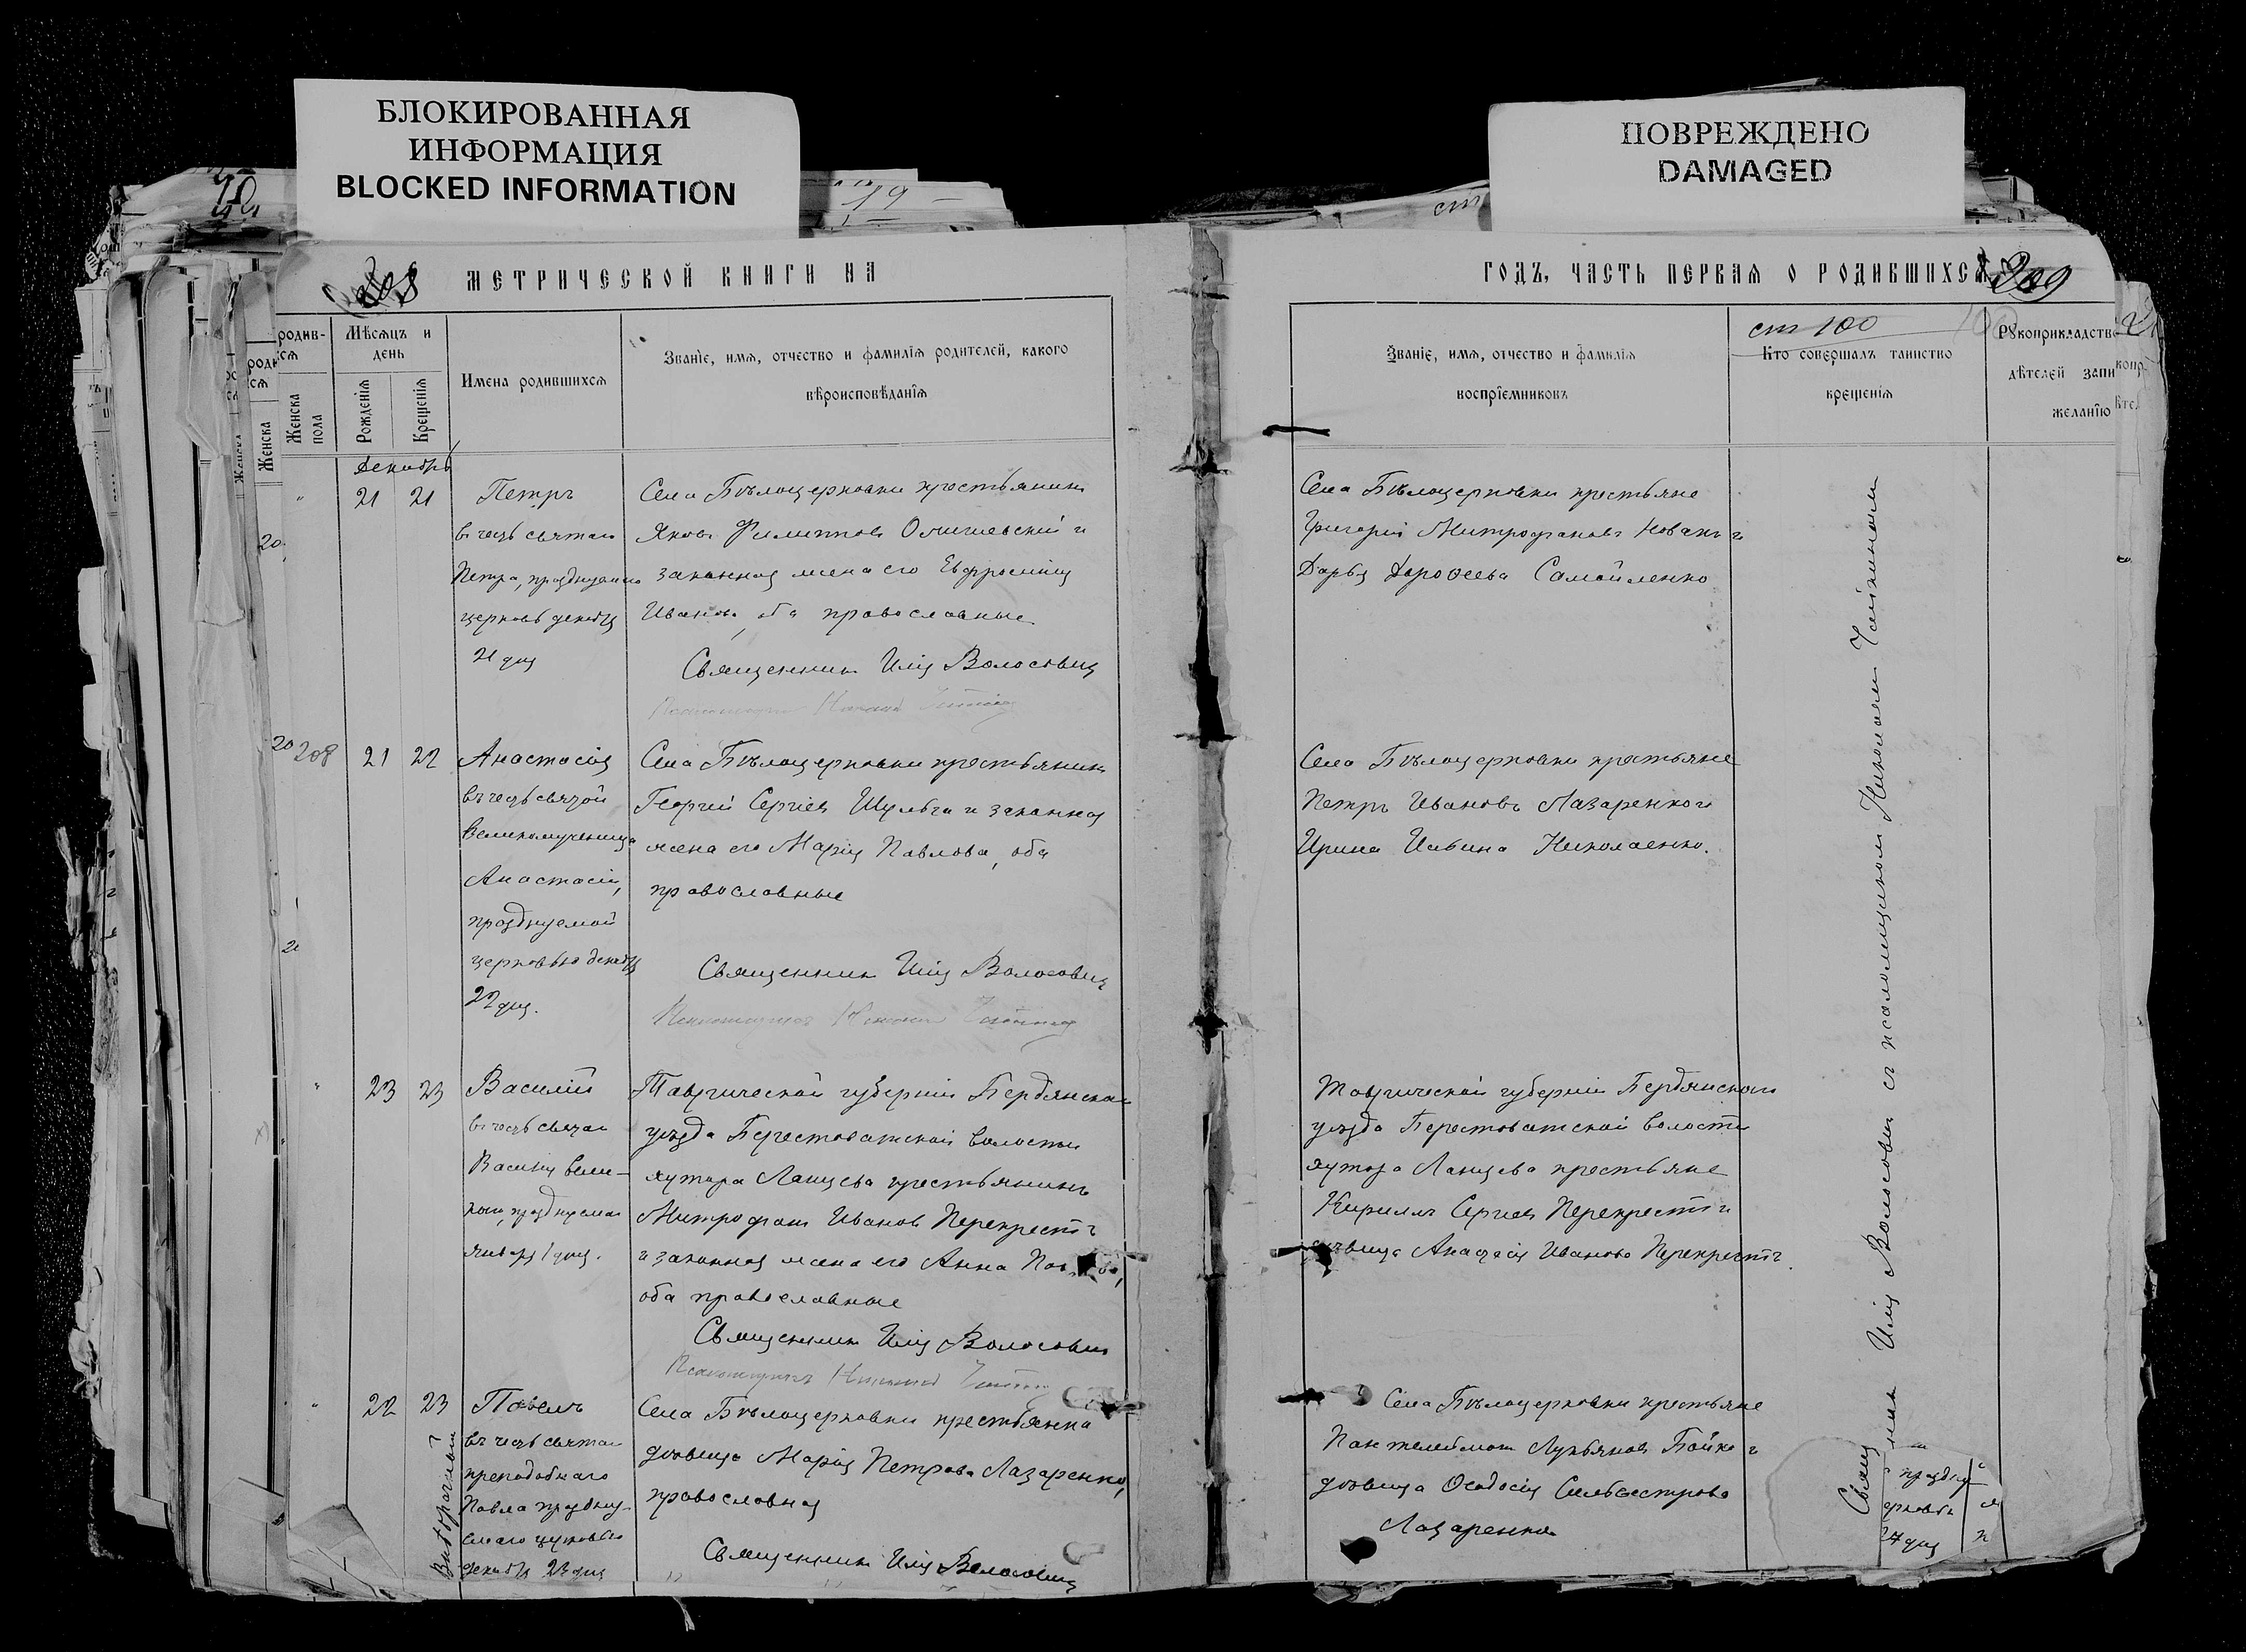 БЛОКИРОВАННАЯ
ИНФОРМАЦИЯ
BLOCKED INFORMATION
ПОВРЕЖДЕНО
DAMAGED
19
208
МЕТРИЧЕСКОЙ КНИГИ НА
родив-
ся
Женска
пола
Мѣсяцъ и
день
Рожденія
Крещенія
Имена родившихся
Званіе, имя, отчество и фамилія родителей, какого
вѣроисповѣданія
Декабрь
21 21
Петръ
въ честь святаго
Петра, празднуемаго
церковью декабря
21 дня
Села Бѣлоцерковки крестьянинъ
Яковъ Филипповъ и
законная жена его Евфросинія
Иванова, оба православные
Священникъ Илія Волосовичъ
208 21 22
Анастасія
въ честь святой
великомученицы
Анастасіи,
празднуемой
церковью декабря
22 дня.
Села Бѣлоцерковки крестьянинъ
Георгій Сергіевъ Шульга и законная
жена его Марія Павлова, оба
православные
Священникъ Илія Волосовичъ
23 23
Василій
въ честь святаго
Василія вели-
каго, празднуемаго
января 1 дня.
Таврической губерніи Бердянскаго
уѣзда Берестоватской волости
хутора Ланцева крестьянинъ
Митрофанъ Ивановъ Перекрестъ
и законная жена его Анна
оба православные
Священникъ Илія Волосовичъ
22 23
Павелъ
въ честь святаго
преподобнаго
Павла праздну-
емаго церковью
декабря 23 дня
Села Бѣлоцерковки крестьянка
дѣвица Марія Петрова Лазаренко,
православная
Священникъ Илія Волосовичъ
ГОДЪ, ЧАСТЬ ПЕРВАЯ О РОДИВШИХСЯ
209
Званіе, имя, отчество и фамилія
воспріемниковъ
ст 100
Кто совершалъ таинство
крещенія
Рукоприкладство
дѣтелей запи
желанію
Села Бѣлоцерковки крестьяне
Григорій Митрофановъ и
Дарья Дороѳеева Самойленко
Села Бѣлоцерковки крестьяне
Петръ Ивановъ Лазаренко и
Ирина Ильина Николаенко.
Таврической губерніи Бердянскаго
уѣзда Берестоватской волости
хутора Ланцева крестьяне
Кириллъ Сергіевъ Перекрестъ и
дѣвица Анастасія Иванова Перекрестъ.
Села Бѣлоцерковки крестьяне
Пантелеймонъ Лукьяновъ Бойко и
дѣвица Ѳеодосія Сильвестрова
Лазаренко
Илія Волосовичъ съ псаломщикомъ Николаемъ